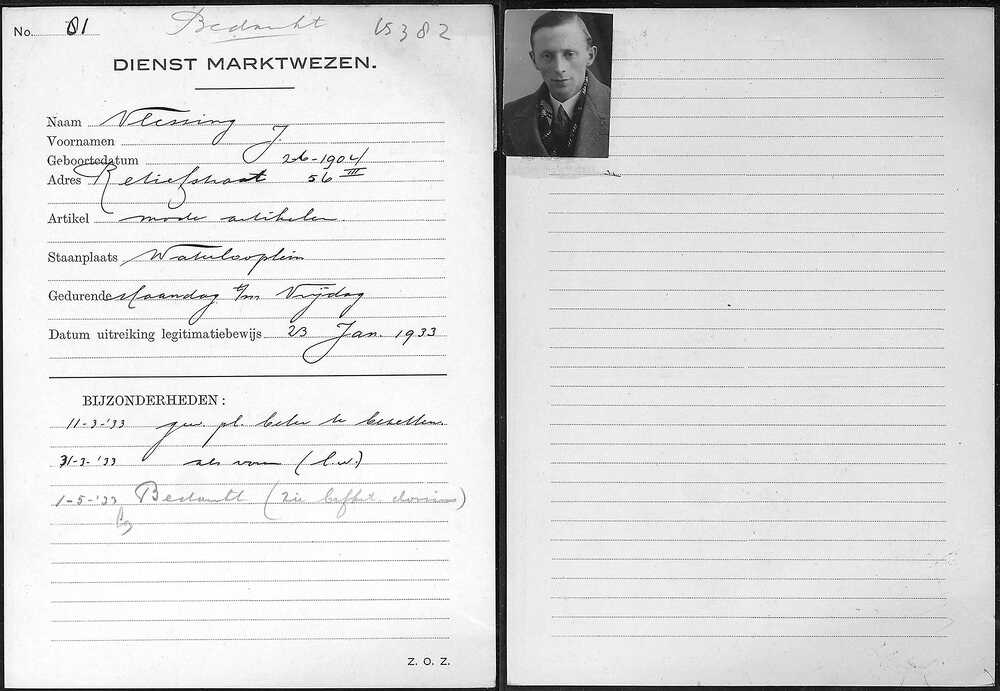 No. 81 Bedankt 15382
DIENST MARKTWEZEN.
Naam Vlessing
Voornamen J.
Geboortedatum 2-6-1904
Adres Retiefstraat 56 III
Artikel mode artikelen
Staanplaats Waterlooplein
Gedurende Maandag t/m Vrijdag
Datum uitreiking legitimatiebewijs 23 Jan. 1933
BIJZONDERHEDEN:
11-3-'33 gew. pl. beter te bezetten.
31-3-'33 als voren
1-5-'33 Bedankt (zie
Z. O. Z.